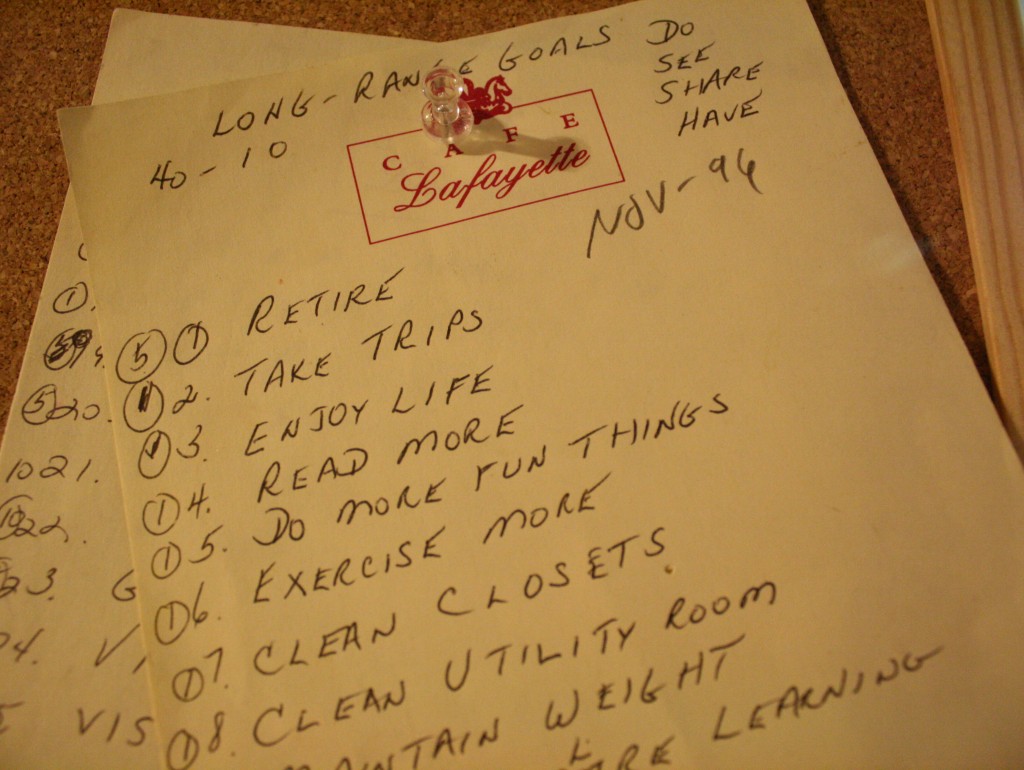 LONG-RANGE GOALS DO
SEE
SHARE
HAVE
40-10
CAFE
Lafayette
NOV-96
5 1 RETIRE
1 2. TAKE TRIPS
1 3. ENJOY LIFE
1 4. READ MORE
1 5. DO MORE FUN THINGS
1 6. EXERCISE MORE
1 7. CLEAN CLOSETS
1 8. CLEAN UTILITY ROOM
MAINTAIN WEIGHT
LEARNING
1.
5 20.
10 21.
22.
23. G
VIS